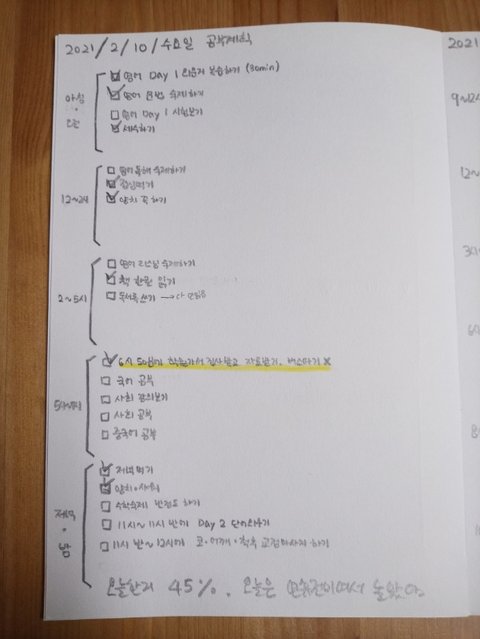 2021/2/10/수요일 공부계획
아침 · 오전
영어 Day 1 외운거 복습하기 (30min)
영어 문법 숙제하기
영어 Day 1 시험보기
세수하기
12~2시
영어독해 숙제하기
점심먹기
양치 꼭 하기
2~5시
영어 리스닝 숙제하기
책 한권 읽기
독서록 쓰기 →
6시 50분에 학원가서 검사받고 자료받기. 버스타기
국어 공부
사회 강의보기
사회 공부
중국어 공부
저녁 · 밤
저녁먹기
양치·샤워
수학숙제 반정도 하기
11시~11시 반에 Day 2 단어외우기
11시 반~12시에 코·어깨·척추 교정마사지 하기
오늘한거 45%. 오늘은 연휴전이여서 놀았다.
2021
9~12시
12~